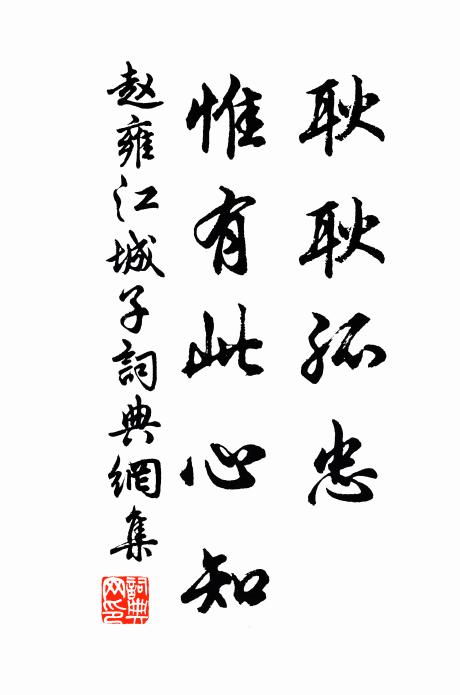 耿耿孤忠
惟有此心知
赵雍江城子詞典網集
詞典网印